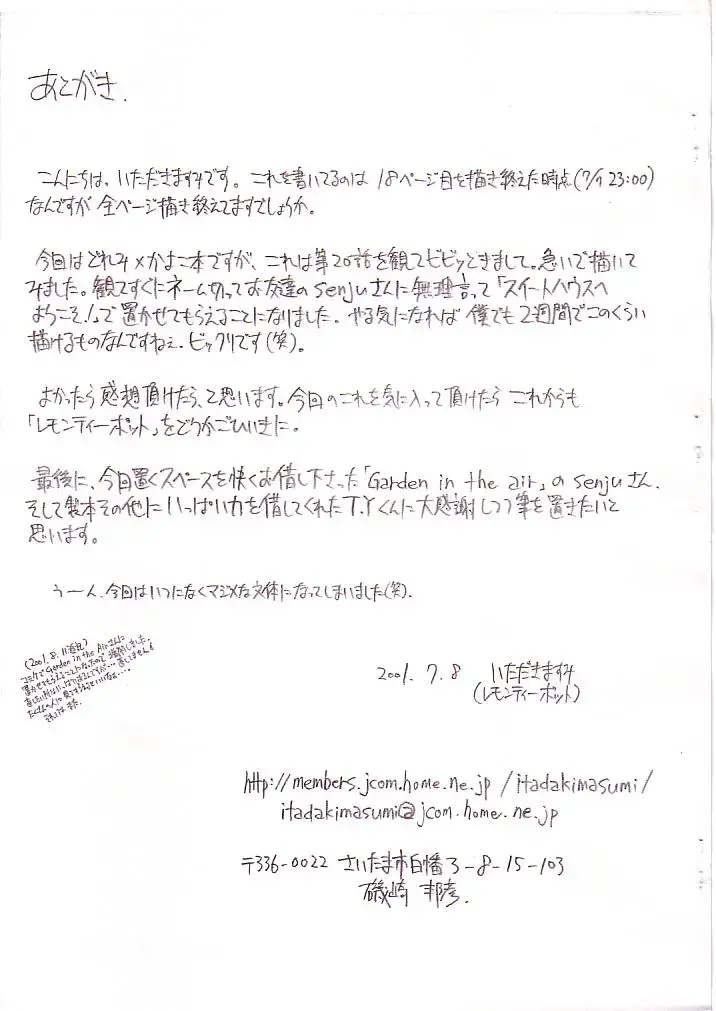 あとがき.
こんにちは、いただきますみです。これを書いてるのは 18ページ目を描き終えた時点(7/7 23:00)
なんですが 全ページ描き終えてますでしょうか。
今回はどれみ×かよこ本ですが、これは第20話を観てビビッときまして。急いで描いて
みました。観てすぐにネーム切ってお友達のsenjuさんに無理言って「スイートハウスへ
ようこそ!」で置かせてもらえることになりました。やる気になれば 僕でも2週間でこのくらい
描けるものなんですねぇ。ビックリです(笑)。
よかったら感想頂けたら、と思います。今回のこれを気に入って頂けたら これからも
「レモンティーポット」をどうかごひいきに。
最後に、今回置くスペースを快くお借し下さった「Garden in the air」のsenjuさん、
そして製本その他にいっぱい力を借してくれたT.Yくんに大感謝しつつ筆を置きたいと
思います。
うーん、今回はいつになくマジメな文体になってしまいました(笑).
(2001.8.11追記)
コミケで Garden in the Airさんに
2001. 7. 8 いただきますみ
(レモンティーポット)
http://members.jcom.home.ne.jp/itadakimasumi/
itadakimasumi@jcom.home.ne.jp
〒336-0022 さいたま市白幡3-8-15-103
磯崎 邦彦.